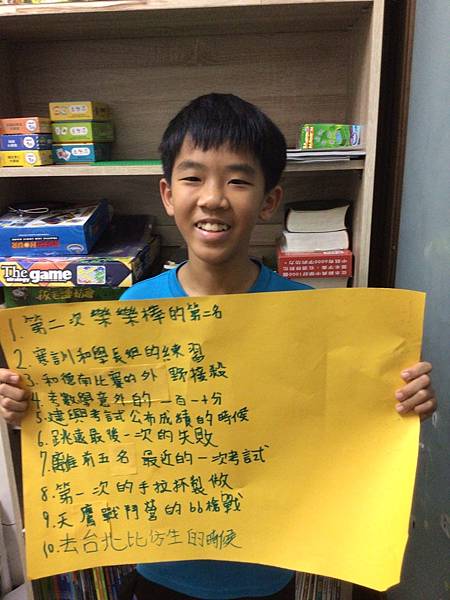 The game
1. 第二次樂樂棒的第二名
2. 寒訓和學長姐的練習
3. 和德南比賽的外野接殺
4. 考數學意外的一百一十分
5. 建興考試公布成績的時候
6. 跳遠最後一次的失敗
7. 離前五名最近的一次考試
8. 第一次的手拉杯製做
9. 天鷹戰鬥營的bb槍戰
10. 去台北比仿生的時候